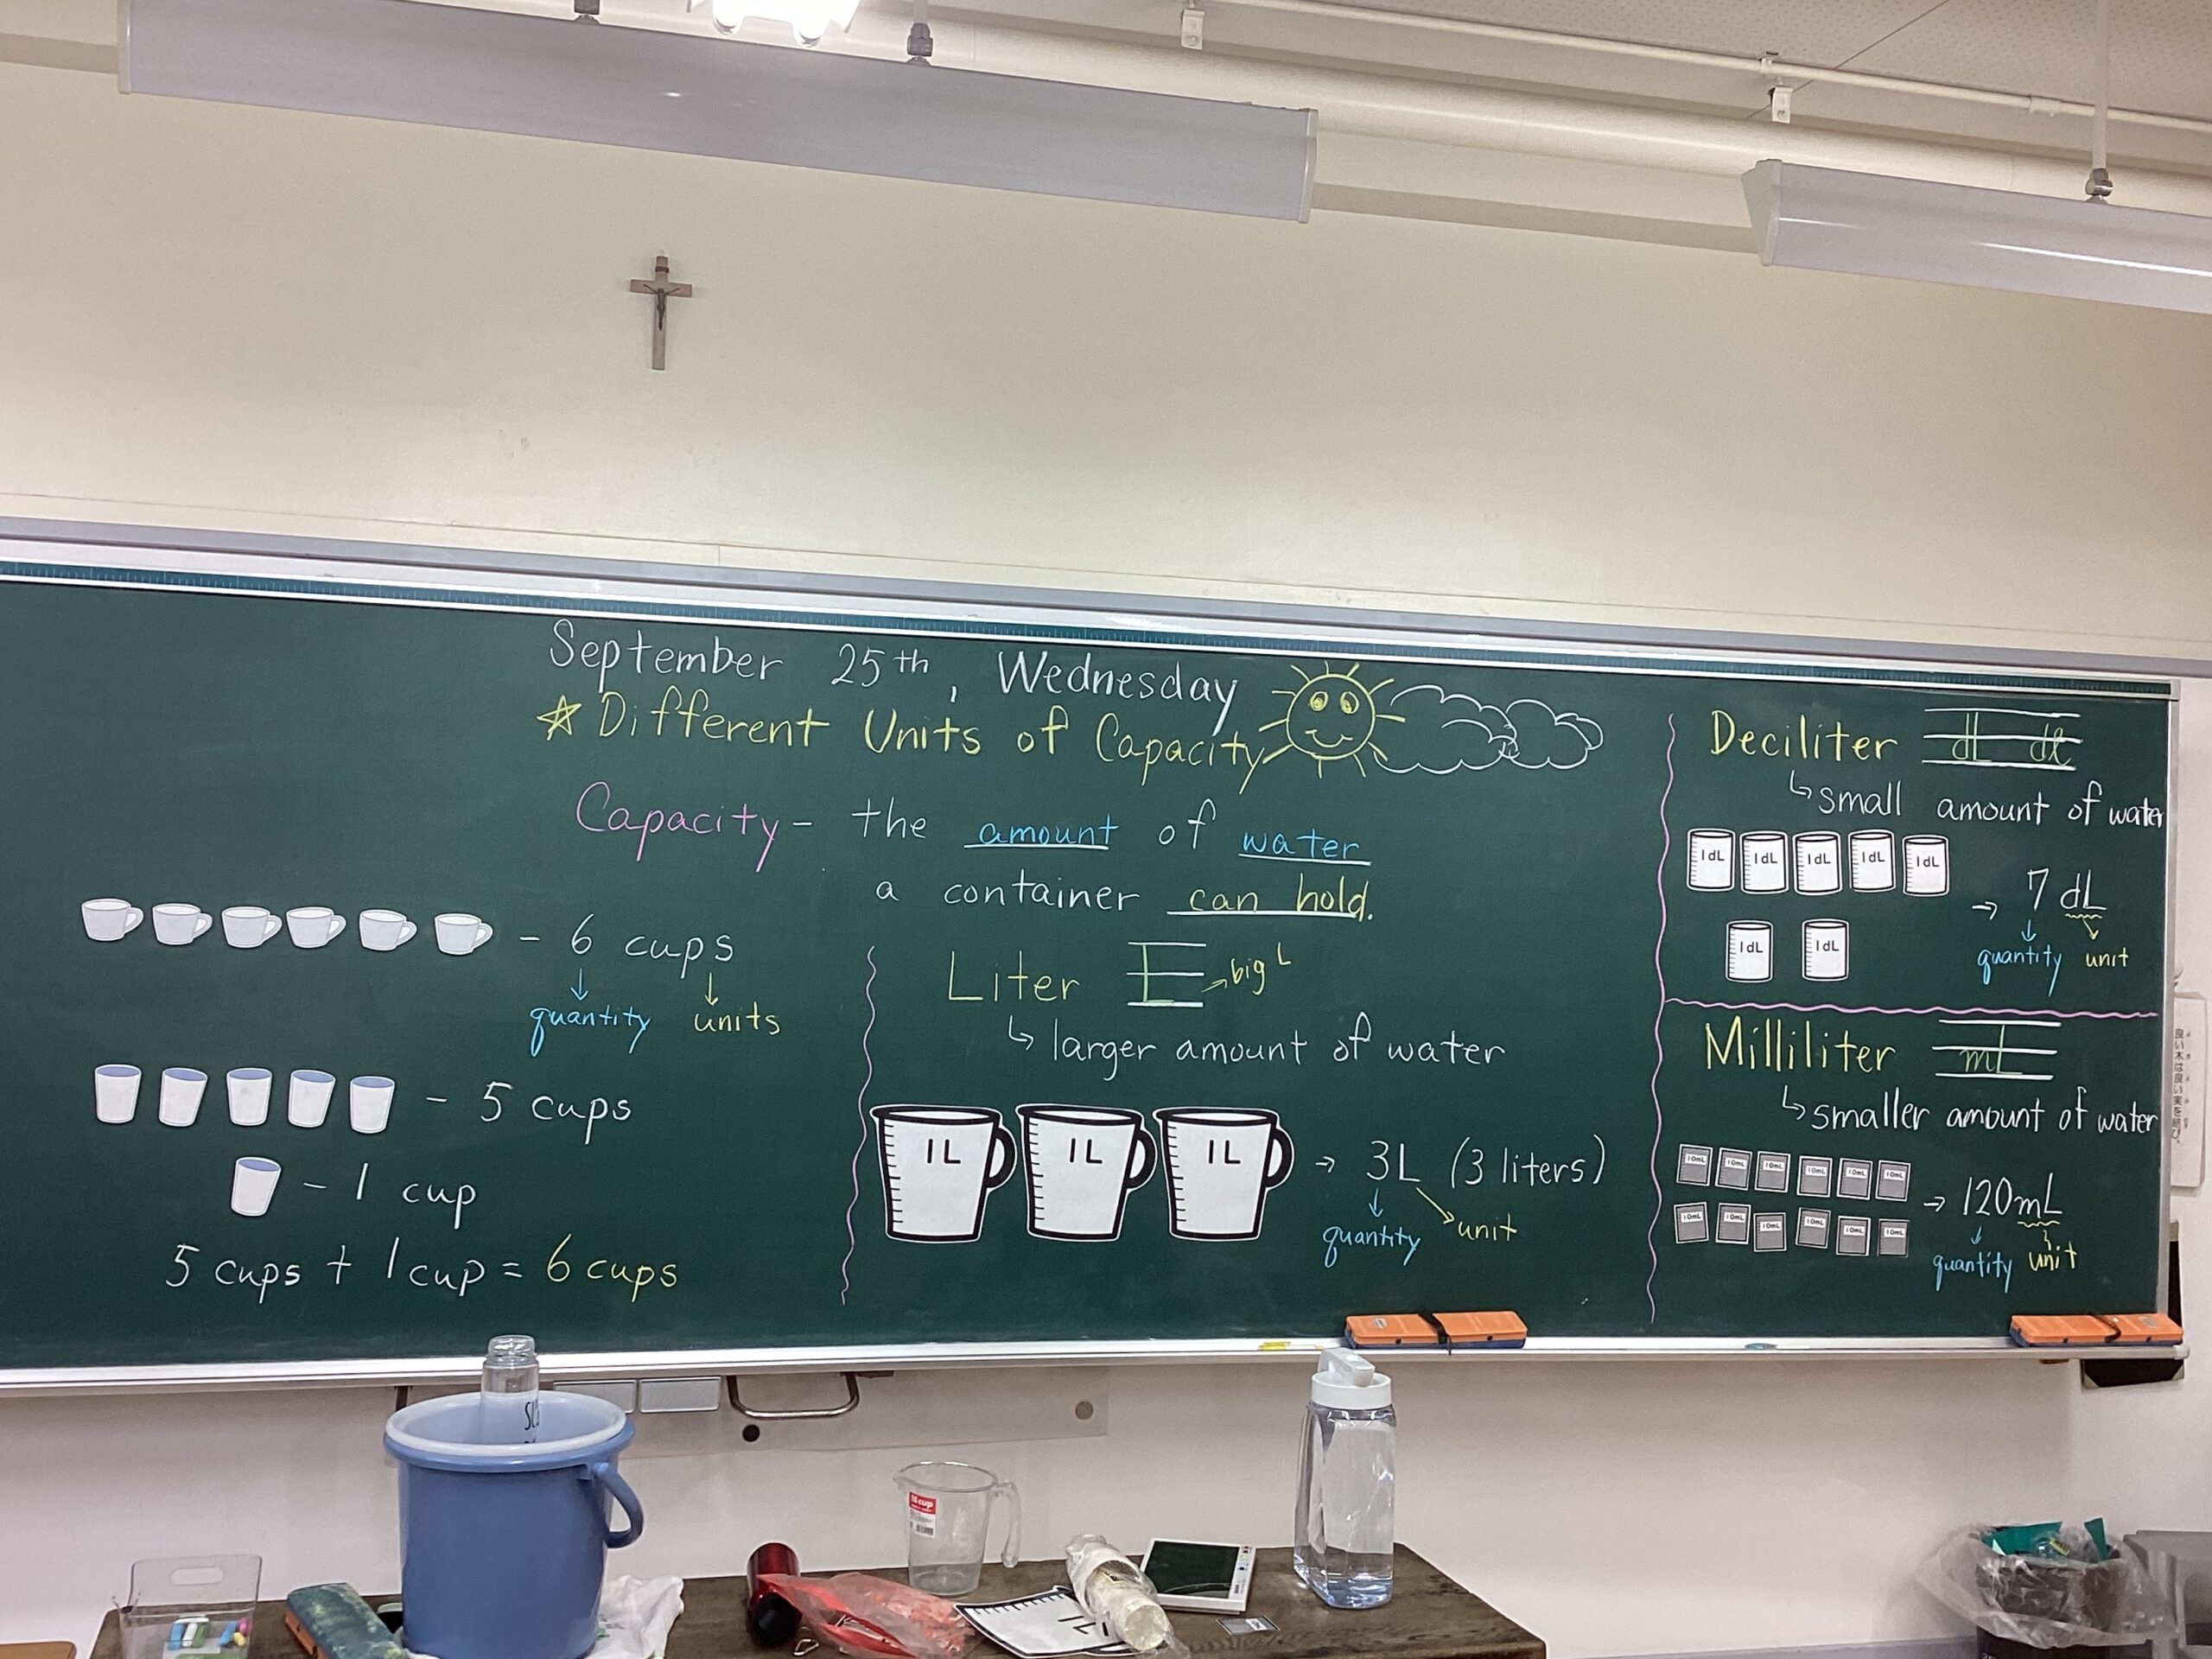 September 25th, Wednesday
☆ Different Units of Capacity
Capacity - the amount of water
a container can hold.
- 6 cups
quantity units
- 5 cups
- 1 cup
5 cups + 1 cup = 6 cups
Liter L → big L
↳ larger amount of water
1L 1L 1L
→ 3L (3 liters)
quantity unit
Deciliter dL dℓ
↳ small amount of water
1dL 1dL 1dL 1dL 1dL
→ 7 dL
1dL 1dL
quantity unit
Milliliter mL
↳ smaller amount of water
10mL 10mL 10mL 10mL 10mL 10mL
→ 120mL
10mL 10mL 10mL 10mL 10mL 10mL
quantity unit
良い木は良い実を結び、
cup
1L